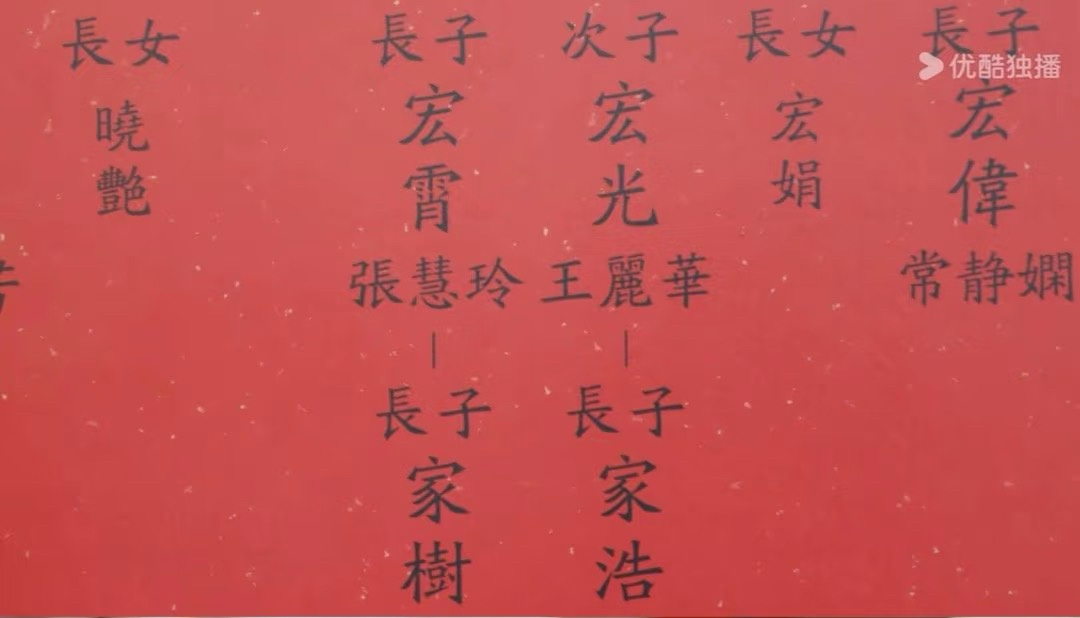 長女 長子 次子 長女 長子
优酷独播
曉艷 宏霄 宏光 宏娟 宏偉
張慧玲 王麗華 常静嫻
長子 長子
家樹 家浩